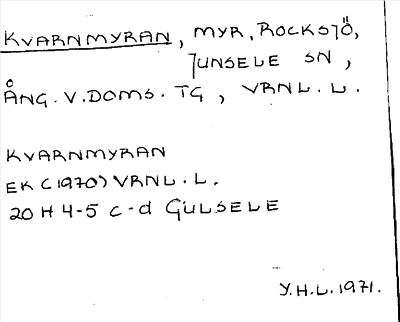 KVARNMYRAN, MYR, ROCKSJÖ,
JUNSELE SN,
ÅNG. V. DOMS. TG, VRNL. L.
KVARNMYRAN
EK (1970) VRNL. L.
20 H 4-5 c-d GULSELE
Y.H.L. 1971.